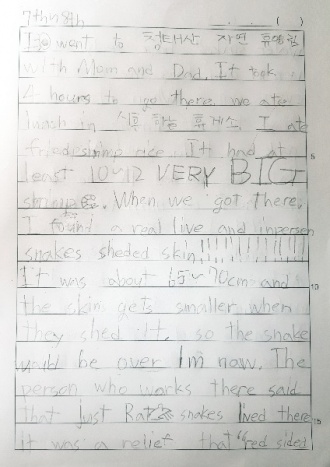 7th~8th ( )
I went to 천태산 자연 휴양림
with Mom and Dad. It took
4 hours to go there we ate
lunch in 휴게소 I ate
fried shrimp rice. It had at
least 10~12 VERY BIG
shrimps. When we got there,
I found a real live and inperson
snakes sheded skin!!!!!!!!!!!!!!!
It was about 65~70cm and
the skin gets smaller when
they shed it, so the snake
would be over 1m now. The
person who works there said
that just Rat snakes lived there
it was a relief that "red sided